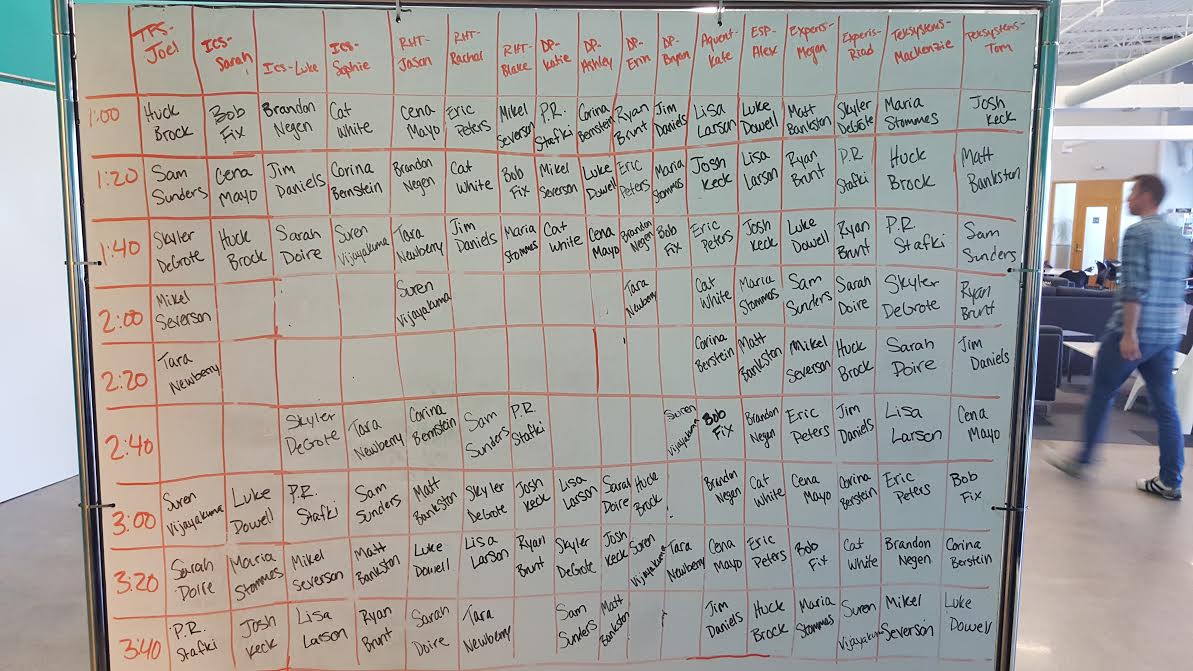 TFS- Joel | ICS- Sarah | ICS-Luke | ICS- Sophie | RHT- Jason | RHT- Rachal | RHT- Blake | DP- Katie | DP- Ashley | DP- Erin | DP- Bryon | Aquent- Kate | ESP- Alex | Experis- Megan | Experis- Riad | Teksystems- Mackenzie | Teksystems- Tom
1:00 | Huck Brock | Bob Fix | Brandon Negen | Cat White | Cena Mayo | Eric Peters | Mikel Severson | P.R. Stafki | Corina Bernstein | Ryan Brunt | Jim Daniels | Lisa Larson | Luke Dowell | Matt Bankston | Skyler DeGrote | Maria Stommes | Josh Keck
1:20 | Sam Sunders | Cena Mayo | Jim Daniels | Corina Bernstein | Brandon Negen | Cat White | Bob Fix | Mikel Severson | Luke Dowell | Eric Peters | Maria Stommes | Josh Keck | Lisa Larson | Ryan Brunt | P.R. Stafki | Huck Brock | Matt Bankston
1:40 | Skyler DeGrote | Huck Brock | Sarah Doire | Suren Vijayakuma | Tara Newberry | Jim Daniels | Maria Stommes | Cat White | Cena Mayo | Brandon Negen | Bob Fix | Eric Peters | Josh Keck | Luke Dowell | Ryan Brunt | P.R. Stafki | Sam Sunders
2:00 | Mikel Severson | Suren Vijayakuma | Tara Newberry | Cat White | Maria Stommes | Sam Sunders | Sarah Doire | Skyler DeGrote | Ryan Brunt
2:20 | Tara Newberry | Corina Berstein | Matt Bankston | Mikel Severson | Huck Brock | Sarah Doire | Jim Daniels
2:40 | Skyler DeGrote | Tara Newberry | Corina Bernstein | Sam Sunders | P.R. Stafki | Suren Vijayakuma | Bob Fix | Brandon Negen | Eric Peters | Jim Daniels | Lisa Larson | Cena Mayo
3:00 | Suren Vijayakuma | Luke Dowell | P.R. Stafki | Sam Sunders | Matt Bankston | Skyler DeGrote | Josh Keck | Lisa Larson | Sarah Doire | Huck Brock | Brandon Negen | Cat White | Cena Mayo | Corina Berstein | Eric Peters | Bob Fix
3:20 | Sarah Doire | Maria Stommes | Mikel Severson | Matt Bankston | Luke Dowell | Lisa Larson | Ryan Brunt | Skyler DeGrote | Josh Keck | Suren Vijayakuma | Tara Newberry | Cena Mayo | Eric Peters | Bob Fix | Cat White | Brandon Negen | Corina Berstein
3:40 | P.R. Stafki | Josh Keck | Lisa Larson | Ryan Brunt | Sarah Doire | Tara Newberry | Sam Sunders | Matt Bankston | Jim Daniels | Huck Brock | Maria Stommes | Suren Vijayakuma | Mikel Severson | Luke Dowell